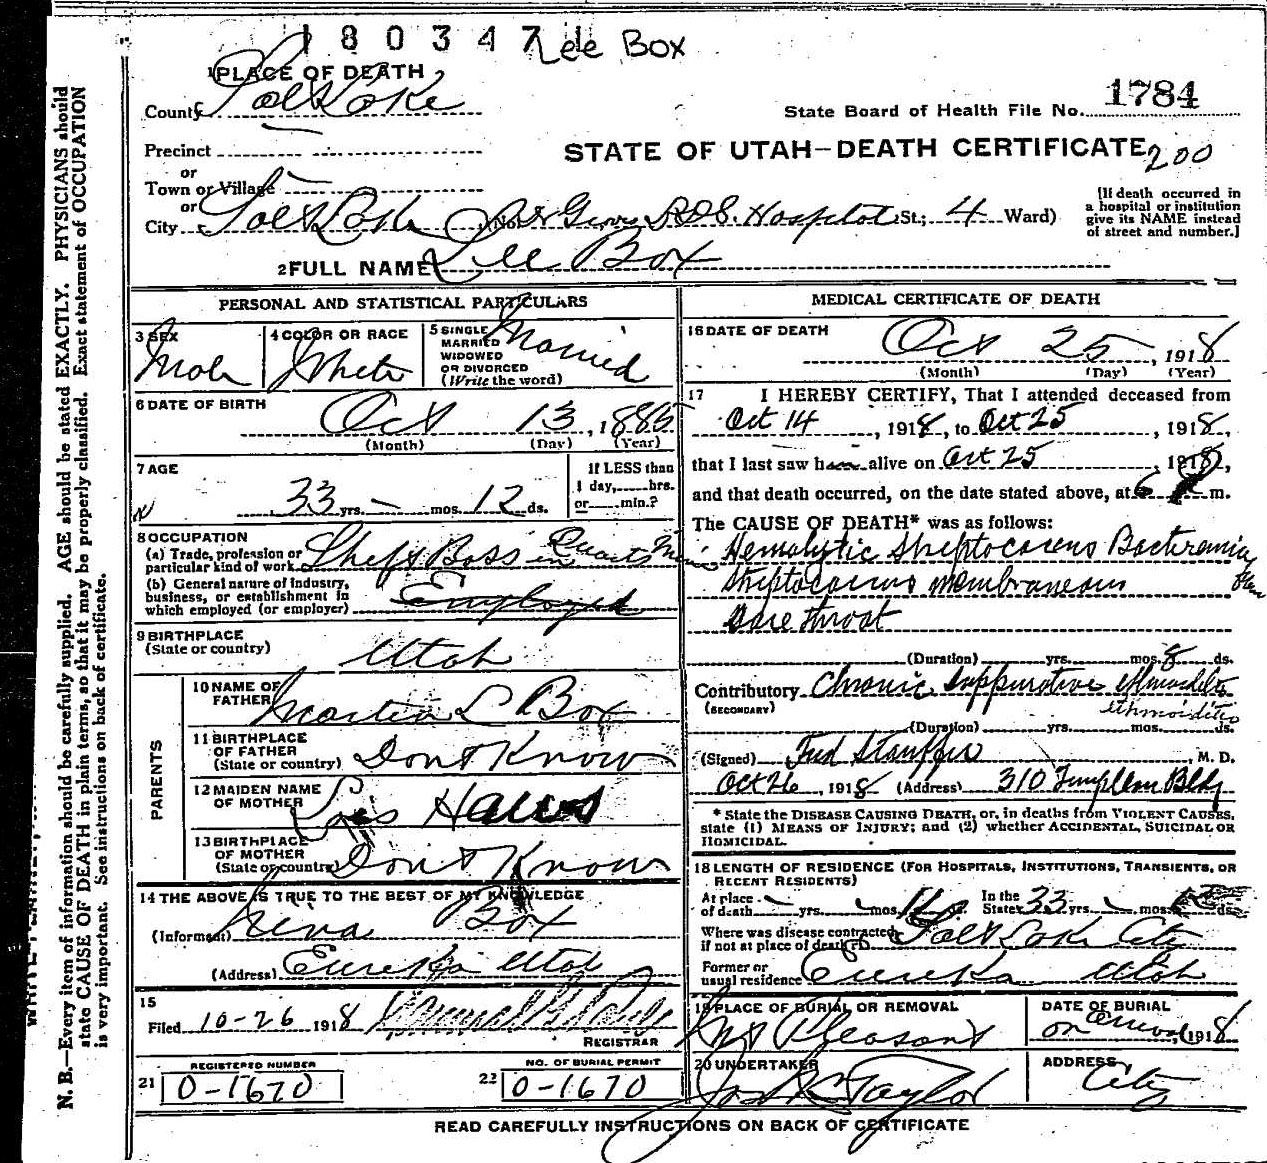 180347 Lee Box
1 PLACE OF DEATH
County Salt Lake
State Board of Health File No. 1784
Precinct
STATE OF UTAH—DEATH CERTIFICATE 200
or
Town or Village
or
City Salt Lake (No. Dr Groves LDS. Hospital St.; 4 Ward)
[If death occurred in a hospital or institution give its NAME instead of street and number.]
2 FULL NAME Lee Box
PERSONAL AND STATISTICAL PARTICULARS
3 SEX Male
4 COLOR OR RACE White
5 SINGLE MARRIED WIDOWED OR DIVORCED (Write the word) Married
6 DATE OF BIRTH Oct 13, 1885
(Month) (Day) (Year)
7 AGE 33 yrs. — mos. 12 ds.
If LESS than 1 day, hrs. or min.?
8 OCCUPATION
(a) Trade, profession or particular kind of work Shift Boss in Quartz Mine
(b) General nature of industry, business, or establishment in which employed (or employer) Employed
9 BIRTHPLACE
(State or country) Utah
PARENTS
10 NAME OF FATHER Martin L Box
11 BIRTHPLACE OF FATHER (State or country) Dont Know
12 MAIDEN NAME OF MOTHER
13 BIRTHPLACE OF MOTHER (State or country) Dont Know
14 THE ABOVE IS TRUE TO THE BEST OF MY KNOWLEDGE
(Informant) Box
(Address) Eureka Utah
15
Filed 10-26 1918
REGISTRAR
21 REGISTERED NUMBER 0-1670
22 NO. OF BURIAL PERMIT 0-1670
MEDICAL CERTIFICATE OF DEATH
16 DATE OF DEATH Oct 25, 1918
(Month) (Day) (Year)
17 I HEREBY CERTIFY, That I attended deceased from
Oct 14, 1918, to Oct 25, 1918,
that I last saw him alive on Oct 25, 1918,
and that death occurred, on the date stated above, at 6 m.
The CAUSE OF DEATH* was as follows:
Hemolytic Streptococcus Bacteremia
Streptococcus membraneous
Sore throat
(Duration) yrs. mos. 8 ds.
Contributory Chronic suppurative ethmoiditis
(SECONDARY) ethmoiditis
(Duration) yrs. mos. ds.
(Signed) Fred Stauffer, M. D.
Oct 26, 1918 (Address) 310 Templeton Bldg
* State the DISEASE CAUSING DEATH, or, in deaths from VIOLENT CAUSES, state (1) MEANS OF INJURY; and (2) whether ACCIDENTAL, SUICIDAL OR HOMICIDAL.
18 LENGTH OF RESIDENCE (FOR HOSPITALS, INSTITUTIONS, TRANSIENTS, OR RECENT RESIDENTS)
At place of death — yrs. — mos. ds. In the State 33 yrs. — mos. ds.
Where was disease contracted, if not at place of death? Salt Lake City
Former or usual residence Eureka Utah
19 PLACE OF BURIAL OR REMOVAL Mt Pleasant
DATE OF BURIAL 1918
20 UNDERTAKER Jos Taylor
ADDRESS City
READ CAREFULLY INSTRUCTIONS ON BACK OF CERTIFICATE
N. B.—Every item of information should be carefully supplied. AGE should be stated EXACTLY. PHYSICIANS should state CAUSE OF DEATH in plain terms, so that it may be properly classified. Exact statement of OCCUPATION is very important. See instructions on back of certificate.